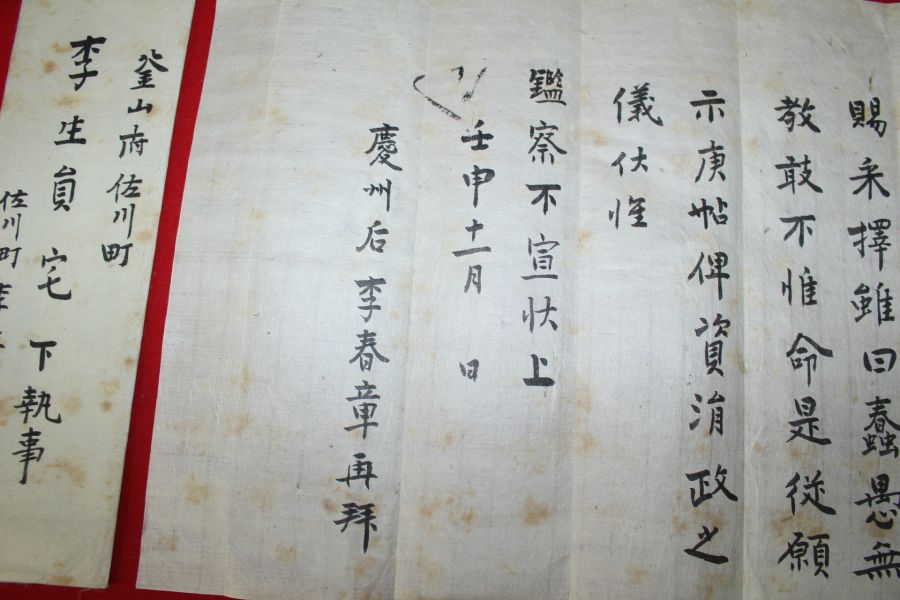 賜采擇雖曰蠢愚無
教敢不惟命是從願
示庚帖俾資涓政之
儀伏惟
鑑察不宣狀上
壬申十一月 日
慶州后李春章再拜
釜山府佐川町
李生員宅下執事
佐川町李